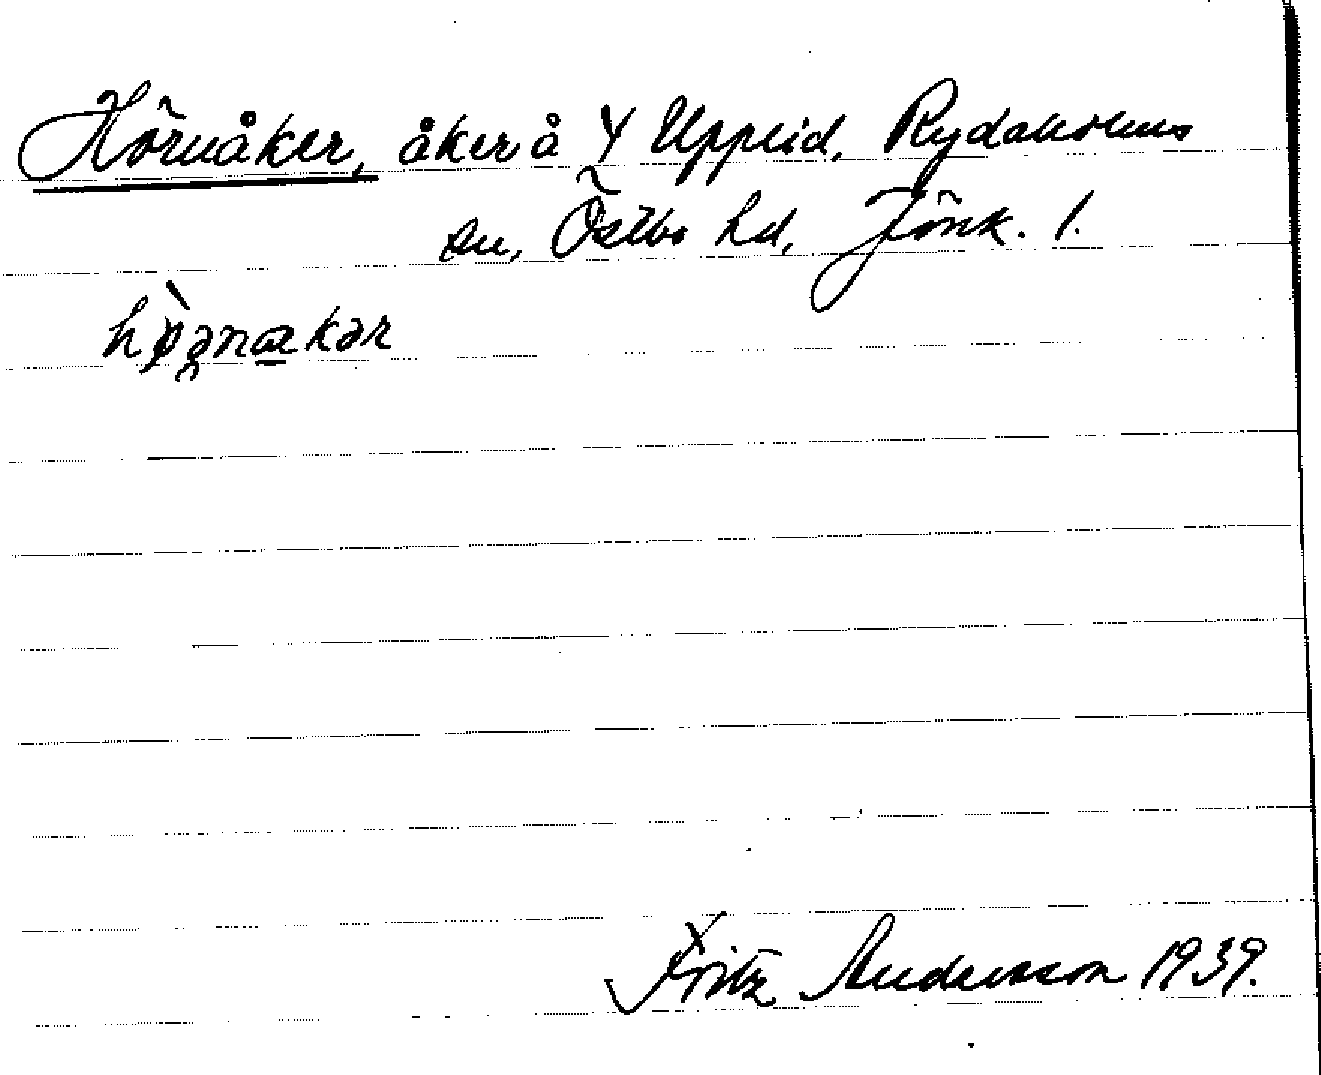 Hörnåker, åker å Y Upplid, Rydaholms
sn, Östbo hd, Jönk. l.
hø̀ə̯nækər
Fritz Andersson 1939.